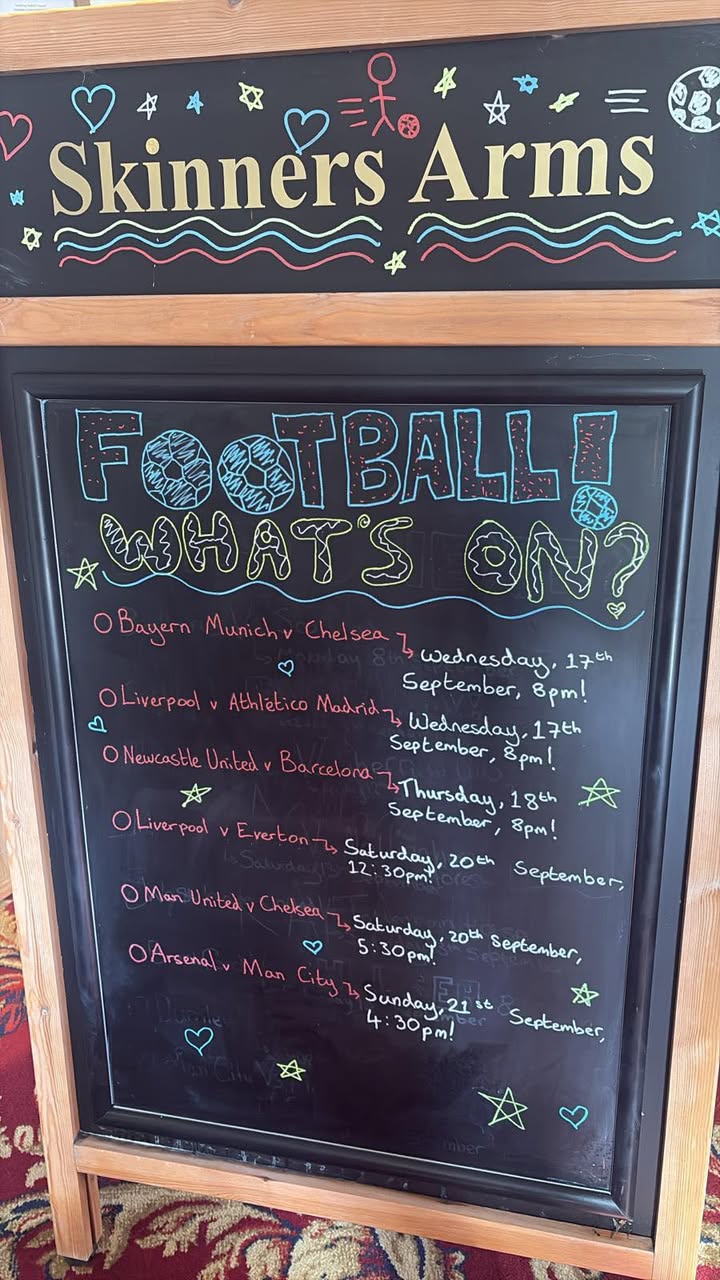 Skinners Arms
FOOTBALL!
WHAT'S ON?
Bayern Munich v Chelsea
Wednesday, 17th
September, 8pm!
Liverpool v Athlético Madrid
Wednesday, 17th
September, 8pm!
Newcastle United v Barcelona
Thursday, 18th
September, 8pm!
Liverpool v Everton
Saturday, 20th September,
12:30pm!
Man United v Chelsea
Saturday, 20th September,
5:30pm!
Arsenal v Man City
Sunday, 21st September,
4:30pm!